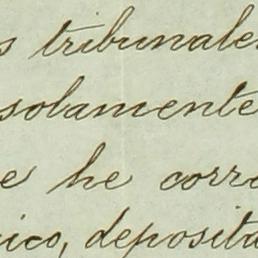 s tribunales
solamente
e he corre
ico, deposita